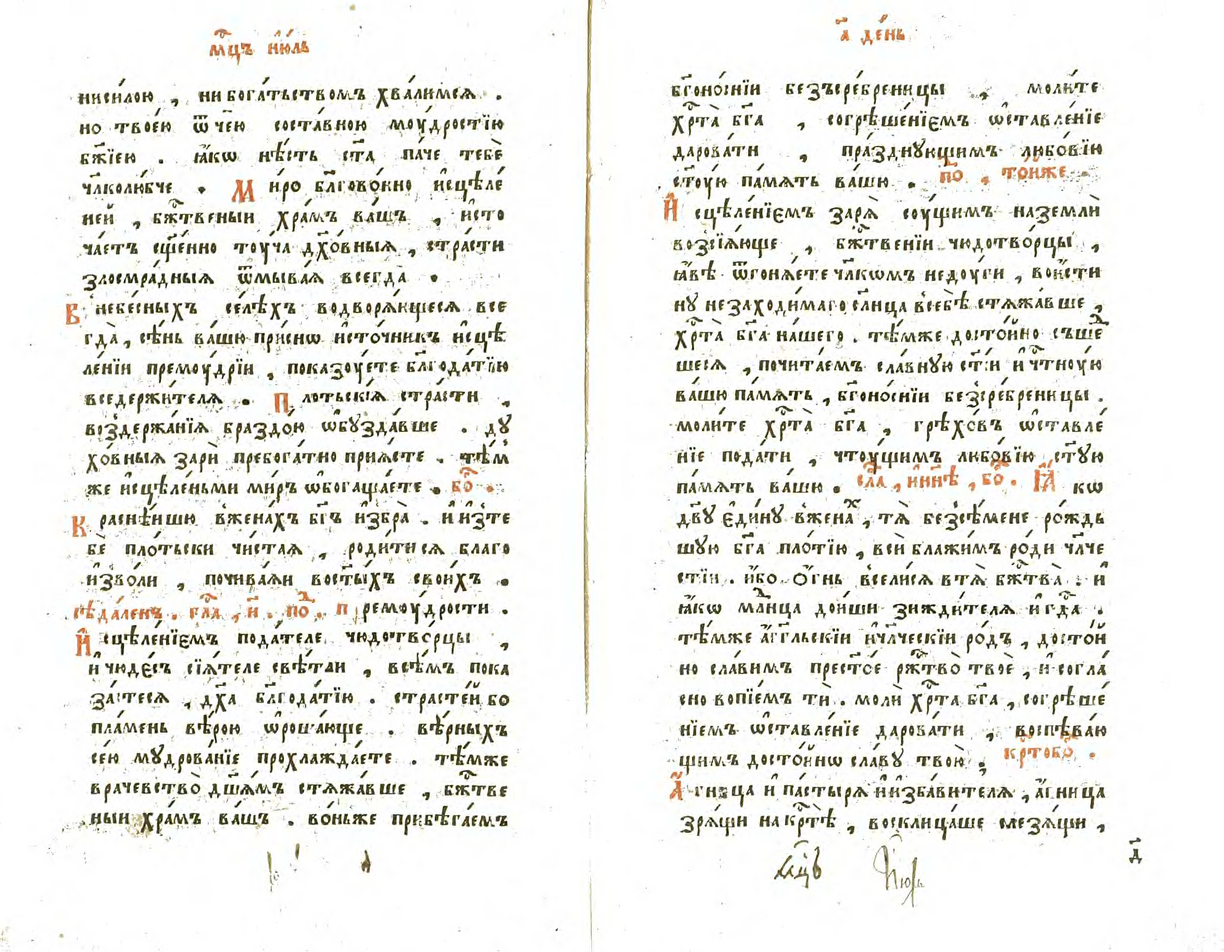 мц҃ъ їю́ль
нисилою , ни бога́тьствомъ хвалимсѧ .
но твоею ѿчею соста́вною моу́дростїю
бж҃їею . ꙗ́кѡ нѣ́сть ст҃а па́че тебѐ
чл҃колю́бче . Ми́ро бл҃гово́нно и҆сцѣле
ней , бж҃твеныи хра́мъ ва́шъ , и҆сто
ча́етъ сщ҃е́нно тоу́ча дх҃о́вныѧ , стра́сти
злосмра́дныѧ ѿмыва́ѧ всегда̀ .
В небе́сныхъ селѣ́хъ водворѧ́ющесѧ все
гда̀ , сѣ́нь ва́шю при́снѡ и҆сто́чникъ и҆сцѣ
ле́нїи премоу́дрїи , показоу́ете бл҃года́тїю
вседержи́телѧ . Пло́тьскїѧ стра́сти ,
воздержа́нїѧ браздо́ю ѡ҆бузда́вше . ду
хо́вныѧ зарѝ пребога́тно прїѧ́сте . тѣ́м
же и҆сцѣле́ньми ми́ръ ѡ҆богаща́ете . бо҃ .
Краснѣ́ишю вжена́хъ бг҃ъ и҆збра̀ . и и҆зте
бѐ пло́тьски чи́стаѧ , роди́тисѧ благо
и҆зво́ли , почива́ѧи восты́хъ свои́хъ .
сѣда́ленъ . гл҃а , и҃ . по҃ . премоу́дрости .
И҆сцѣле́нїемъ пода́теле чюдотво́рцы ,
и҆ чюде́съ сїѧ́теле свѣ́таи , всѣ́мъ пока
за́стесѧ , дх҃а бл҃года́тїю . страсте́й бо
пла́мень вѣ́рою ѡ҆роша́юще . вѣ́рныхъ
се́ю мꙋдрова́нїе прохлажда́ете . тѣ́мже
враче́вство дш҃а́мъ стѧжа́вше , бж҃тве
ныи хра́мъ ва́шъ . во́ньже прибѣга́емъ
а҃ де́нь
бг҃оно́снїи безъсре́бреницы , моли́те
хр҃та̀ бг҃а , согрѣше́нїемъ ѡ҆ставле́нїе
дарова́ти , пра́зднꙋющимъ любо́вїю
ст҃ꙋ́ю па́мѧть ва́шю . по҃ , то́йже .
И҆сцѣле́нїемъ зарѧ̀ соу́щимъ наземлѝ
возсїѧ́юще , бж҃твенїи чюдотво́рцы ,
ꙗ҆́вѣ ѿгонѧ́ете чл҃кѡмъ недоу́ги , вои́сти
нꙋ незаходи́маго сл҃нца всебѣ̀ стѧжа́вше ,
хр҃та̀ бг҃а на́шего . тѣ́мже досто́йно съше́д
шесѧ , почита́емъ сла́внꙋю ст҃і́и и҆ чтноу́ю
ва́шю па́мѧть , бг҃оно́снїи безсре́бреницы .
моли́те хр҃та̀ бг҃а , грѣхо́въ ѡ҆ставле́
нїе пода́ти , чтоу́щимъ любо́вїю ст҃ꙋ́ю
па́мѧть ва́шю . сла҃ , и҆ни҃нѣ , бо҃ . Ꙗ҆́кѡ
дв҃ꙋ є҆ди́нꙋ вжена́х , тѧ̀ безсѣ́мене ро́ждь
шꙋю бг҃а пло́тїю , всѝ блажи́мъ ро́ди чл҃че
стїи . и҆́бо ѻ҆́гнь всели́сѧ втѧ̀ бж҃тва̀ . и҆
ꙗ҆́кѡ мл҃нца дои́ши зижди́телѧ и҆ гд҃а .
тѣ́мже а҆́гг҃льскїи и҆ чл҃ческїи ро́дъ , досто́и
но сла́вимъ прест҃о́е рж҃тво̀ твоѐ , и҆ согла́
сно вопїе́мъ ти . молѝ хр҃та̀ бг҃а , согрѣше́
нїемъ ѡ҆ставле́нїе дарова́ти , воспѣва́ю
щимъ досто́йнѡ сла́вꙋ твою̀ . кр҃тобо҃ .
А҆́гнца и҆ па́стырѧ и҆ и҆зба́вителѧ , а҆́гница
зрѧ́щи на кр҃тѣ̀ , восклица́ше слезѧ́щи ,
д҃
мц҃ъ їю́ль